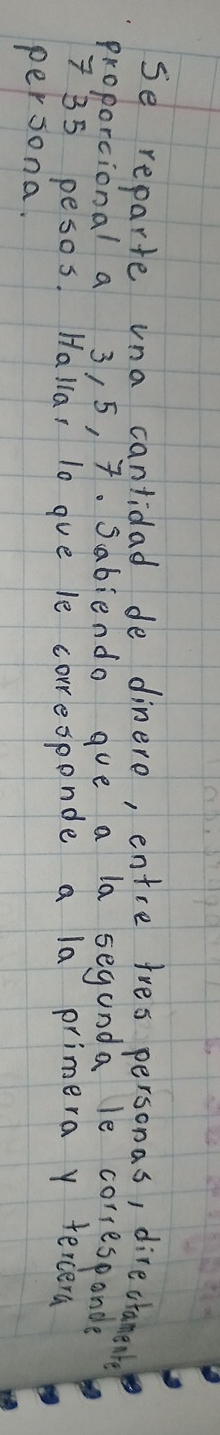 Se reparte una cantidad de dinero, entre tres personas, directamente
proporcional a 3, 5, 7. Sabiendo que a la segunda le corresponde
735 pesos. Hallar lo que le corresponde a la primera y tercera
persona.